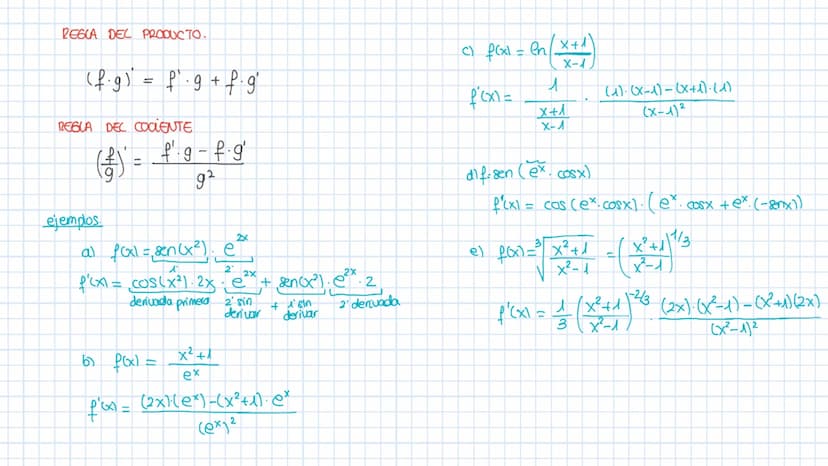 REGLA DEL PRODUCTO.
(f·g)' = f'·g + f·g'
REGLA DEL COCIENTE
(f/g)' = (f'·g - f·g')/g²
ejemplos
a) f(x) = sen(x²)·e^(2x)
1· 2·
f'(x) = cos(x²)·2x·e^(2x) + sen(x²)·e^(2x)·2
derivada primera 2· sin derivar + 1· sin derivar 2· derivada
b) f(x) = (x²+1)/e^x
f'(x) = ((2x)·(e^x)-(x²+1)·e^x)/(e^x)²
c) f(x) = ln((x+1)/(x-1))
f'(x) = 1/((x+1)/(x-1)) · ((1)·(x-1)-(x+1)·(1))/(x-1)²
d) f=sen(e^x·cosx)
f'(x) = cos(e^x·cosx)·(e^x·cosx + e^x·(-senx))
e) f(x) = ³√((x²+1)/(x²-1)) = ((x²+1)/(x²-1))^(1/3)
f'(x) = 1/3 ((x²+1)/(x²-1))^(-2/3) · ((2x)·(x²-1)-(x²+1)(2x))/(x²-1)²